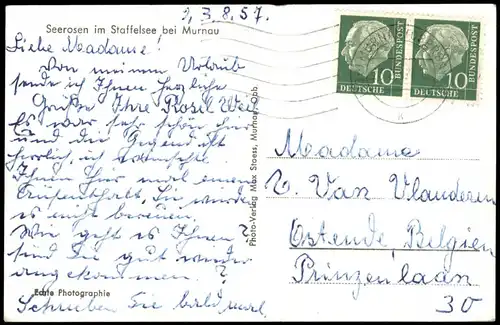 Seerosen im Staffelsee bei Murnau
3.8.57.
Liebe Madame!
Von meinem Urlaub
sende ich Ihnen herzliche
Grüße Ihre Rosl Weiß
Es war sehr schön hier
und die Gegend ist
herrlich, ich wünschte
Ihnen hier mal einen
Aufenthalt, Sie würden
es nicht bereuen.
Wie geht es Ihnen?
Sind Sie gut wieder
angekommen?
Echte Photographie
Schreiben Sie bald mal
Photo-Verlag Max Stoess, Murnau
10
DEUTSCHE
BUNDESPOST
10
DEUTSCHE
BUNDESPOST
Madame
V. Van Vlanderen
Ostende Belgien
Prinzenlaan
30